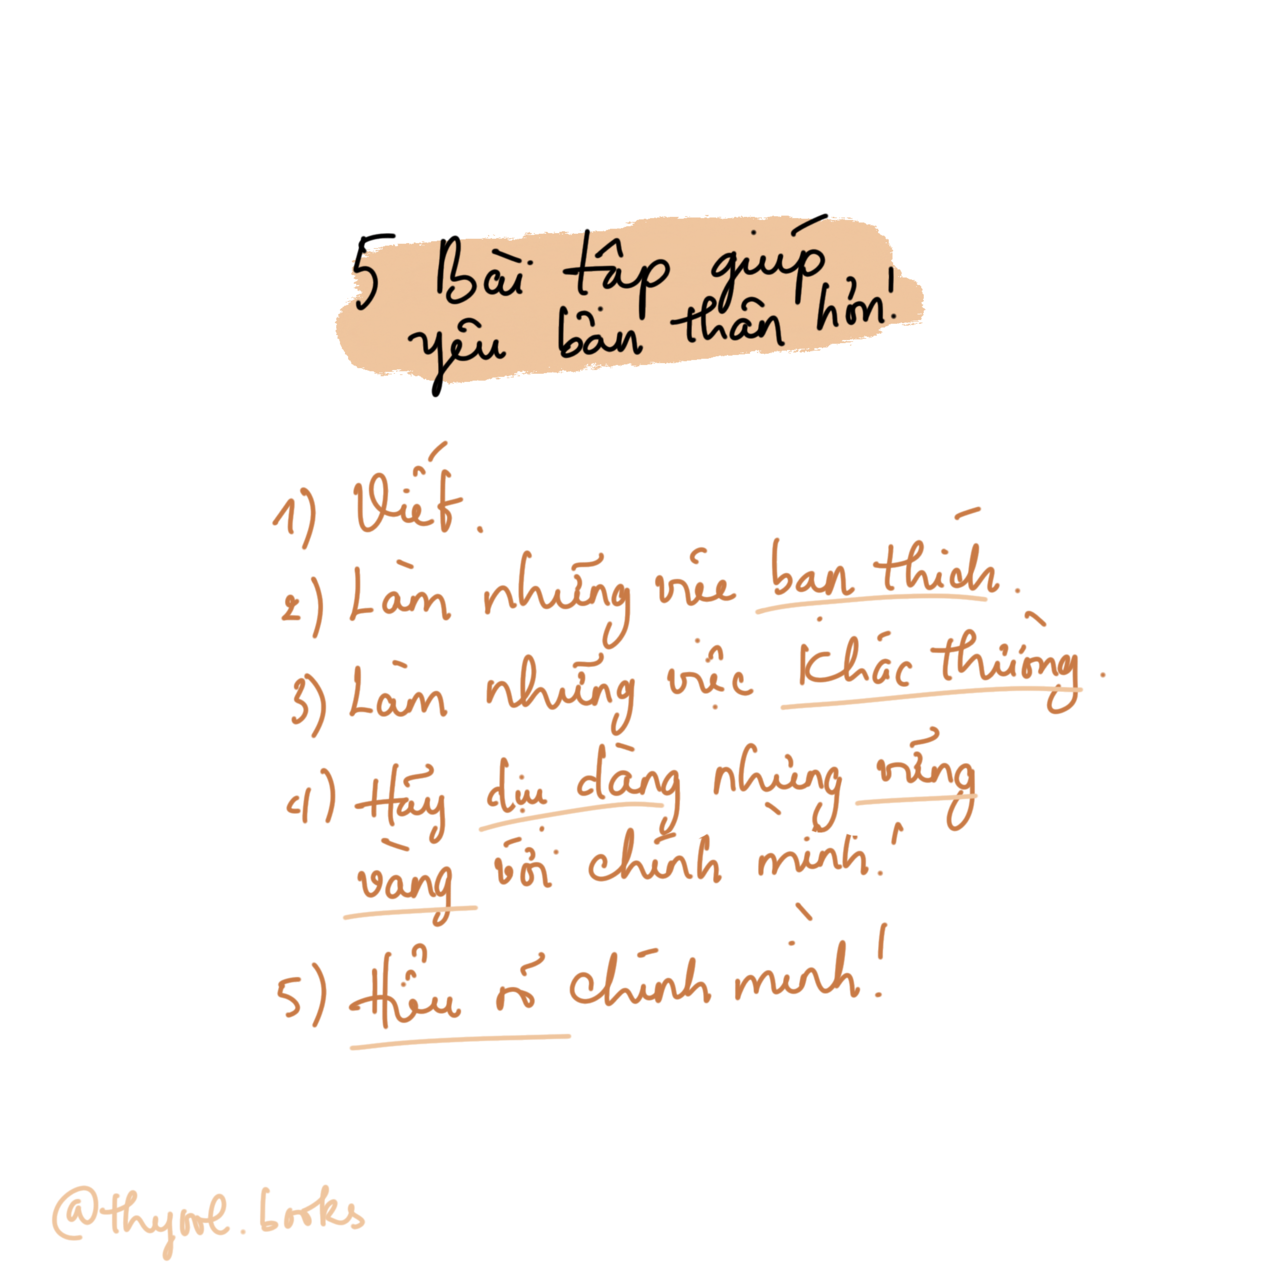 5 Bài tập giúp
yêu bản thân hơn!
1) Viết.
2) Làm những việc bạn thích.
3) Làm những việc khác thường.
4) Hãy dịu dàng nhưng vững
vàng với chính mình!
5) Hiểu rõ chính mình!